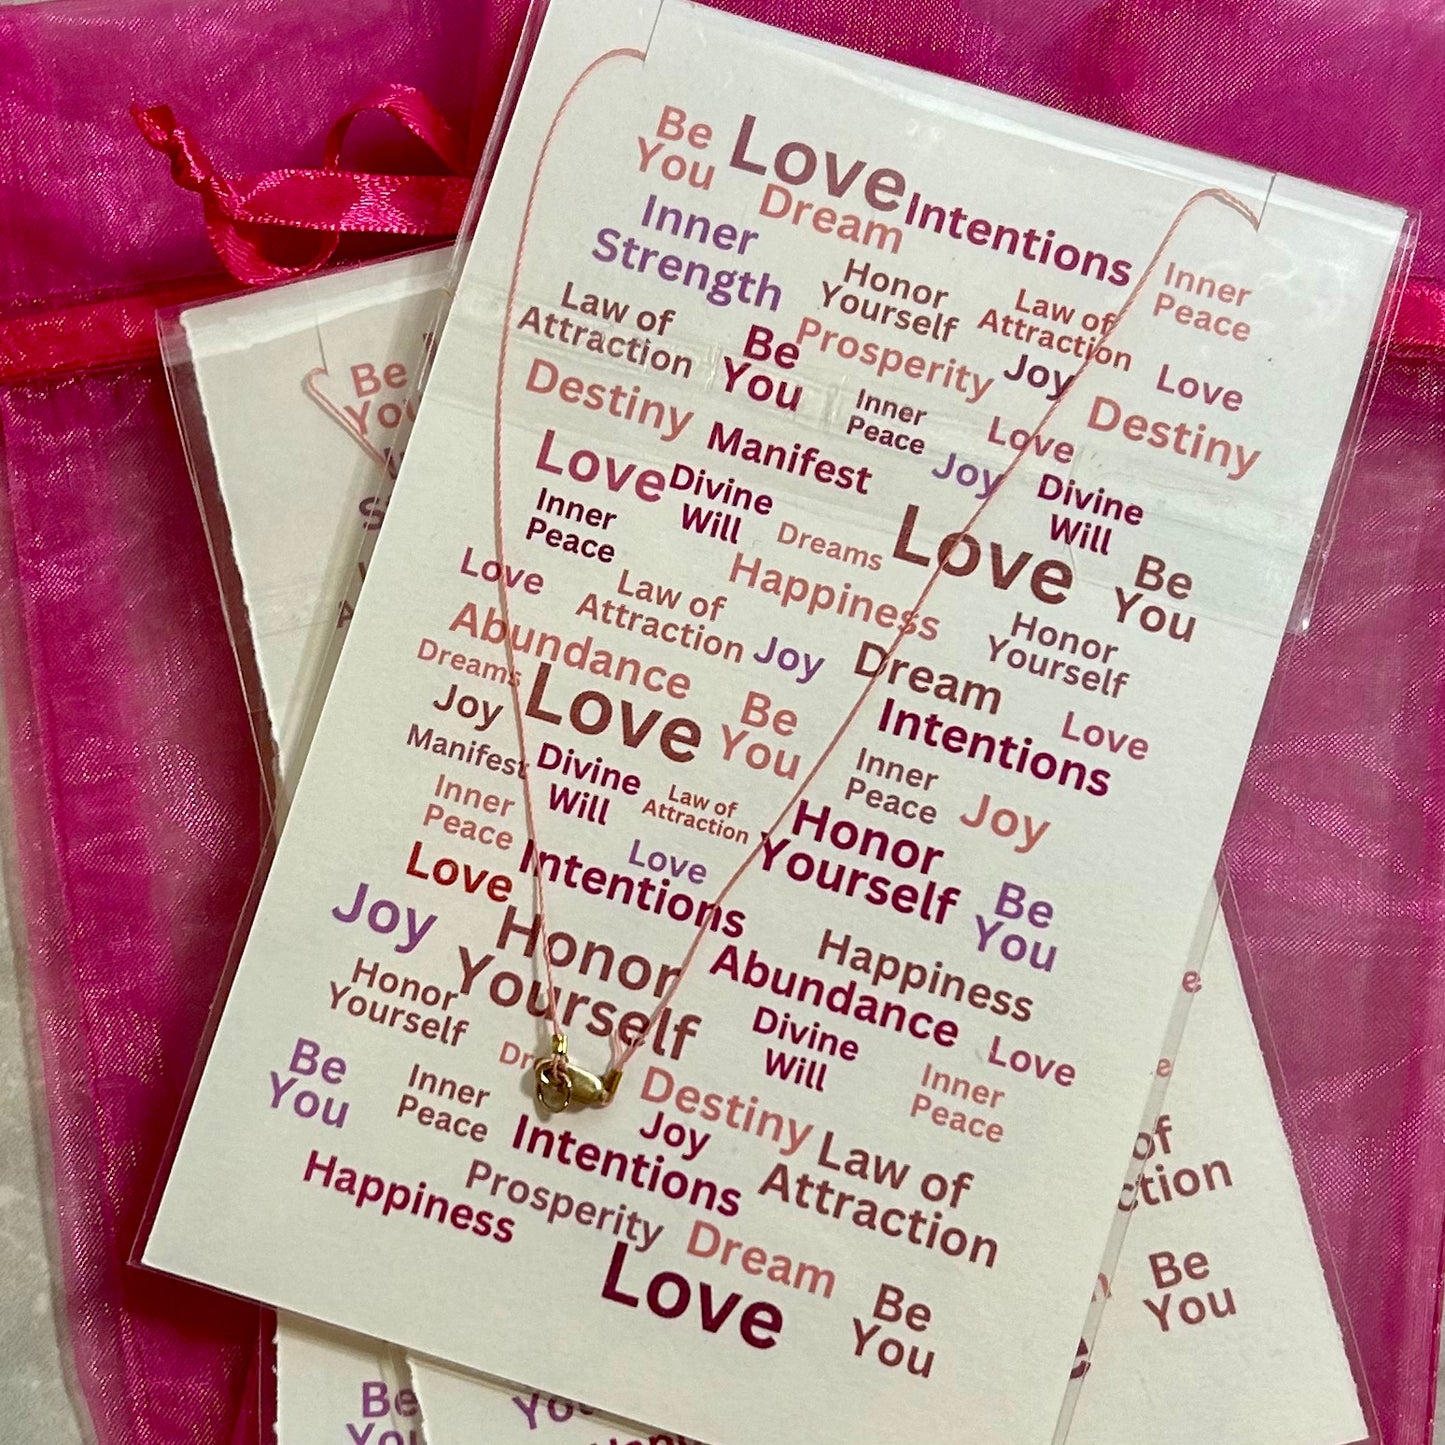 Be
You
Love
Dream
Intentions
Inner
Strength
Honor
Yourself
Law of
Attraction
Inner
Peace
Law of
Attraction
Be
You
Prosperity
Joy
Love
Destiny
Manifest
Inner
Peace
Love
Joy
Destiny
Love
Divine
Will
Dreams
Love
Divine
Will
Be
You
Inner
Peace
Love
Law of
Attraction
Happiness
Joy
Honor
Yourself
Abundance
Dreams
Love
Be
You
Dream
Intentions
Love
Joy
Manifest
Divine
Will
Law of
Attraction
Inner
Peace
Joy
Inner
Peace
Love
Intentions
Love
Honor
Yourself
Be
You
Joy
Honor
Yourself
Happiness
Abundance
Honor
Yourself
Divine
Will
Love
Be
You
Inner
Peace
Destiny
Inner
Peace
Intentions
Joy
Law of
Attraction
Happiness
Prosperity
Dream
Love
Be
You
Be
of
Be
You
Be